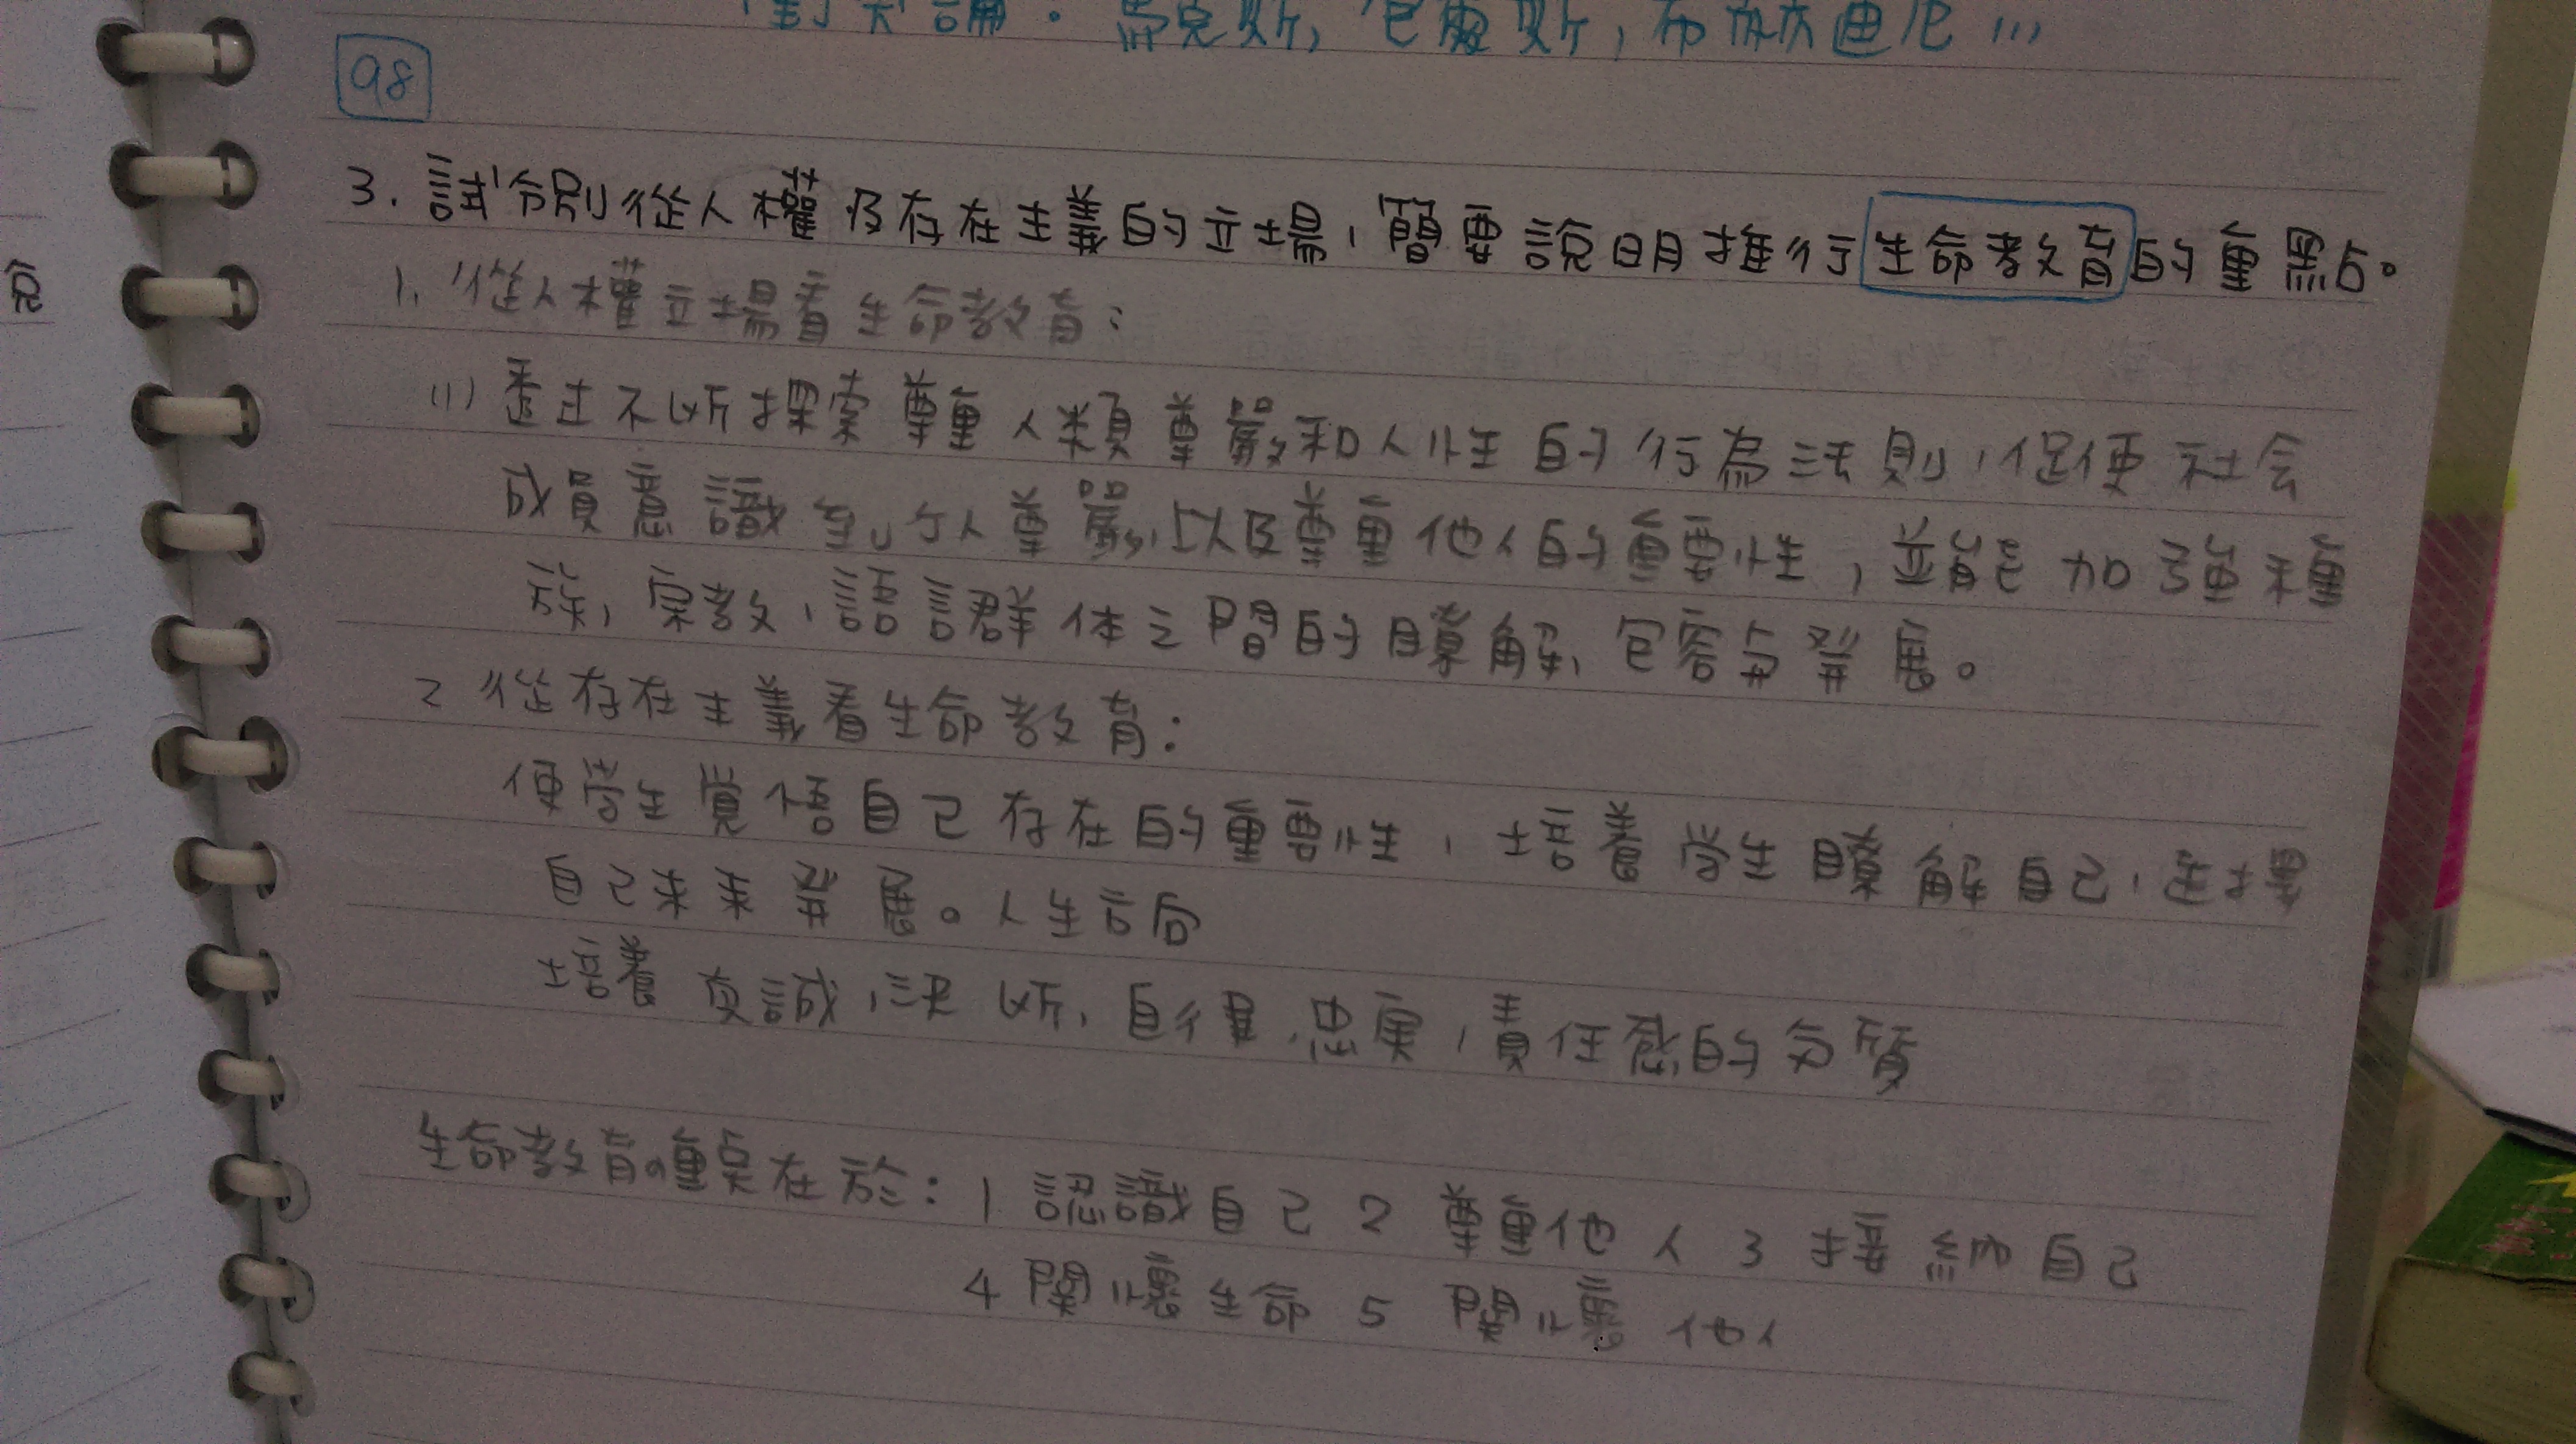 封大謂:馬克斯,包爾斯,布林迪尼...
98
3. 試分別從人權及存在主義的立場,簡要說明推行生命教育的重點。
1. 從人權立場看生命教育:
(1) 透过不断探索尊重人類尊嚴和人性的行為法則,促使社会
成員意識到个人尊嚴以及尊重他人的重要性,並能加強種
族,宗教,語言群体之間的瞭解,包容与發展。
2 從存在主義看生命教育:
使学生覺悟自己存在的重要性,培養学生瞭解自己,選擇
自己未來發展。人生方向
培養真誠,決断,自律,忠實,責任感的气質
生命教育的重點在於:1 認識自己 2 尊重他人 3 接納自己
4 關懷生命 5 關懷他人